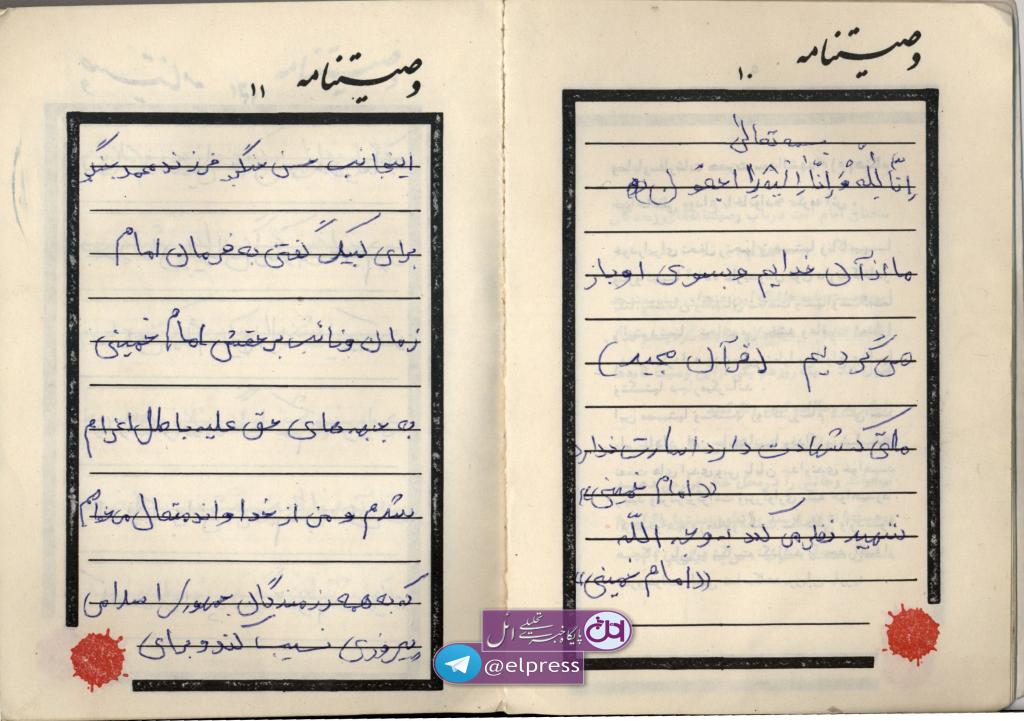 وصیتنامه
۱۰
بسمه تعالی
اِنّا لِلّه وَ اِنّا اِلَیْهِ راجعوُن
ما از آن خدایم و بسوی او باز
می گردیم (قرآن مجید)
ملتی که شهادت دارد اسارت ندارد
«امام خمینی»
شهید نظر می کند به وجه اللّه
«امام خمینی»
وصیتنامه
۱۱
اینجانب حسن فرزند محمد
برای لبیک گفتی به فرمان امام
زمان و نائب بر حقش امام خمینی
به جبهه های حق علیه باطل اعزام
شدم و من از خداوند متعال می خواهم
که به همه رزمندگان جمهوری اسلامی
پیروزی نسیب کند و برای
پایگاه خبری تحلیلی امل
@elpress